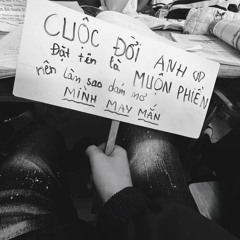 CUỘC ĐỜI ANH
Đặt tên là MUỘN PHIỀN
nên làm sao dám mơ
MÌNH MAY MẮN